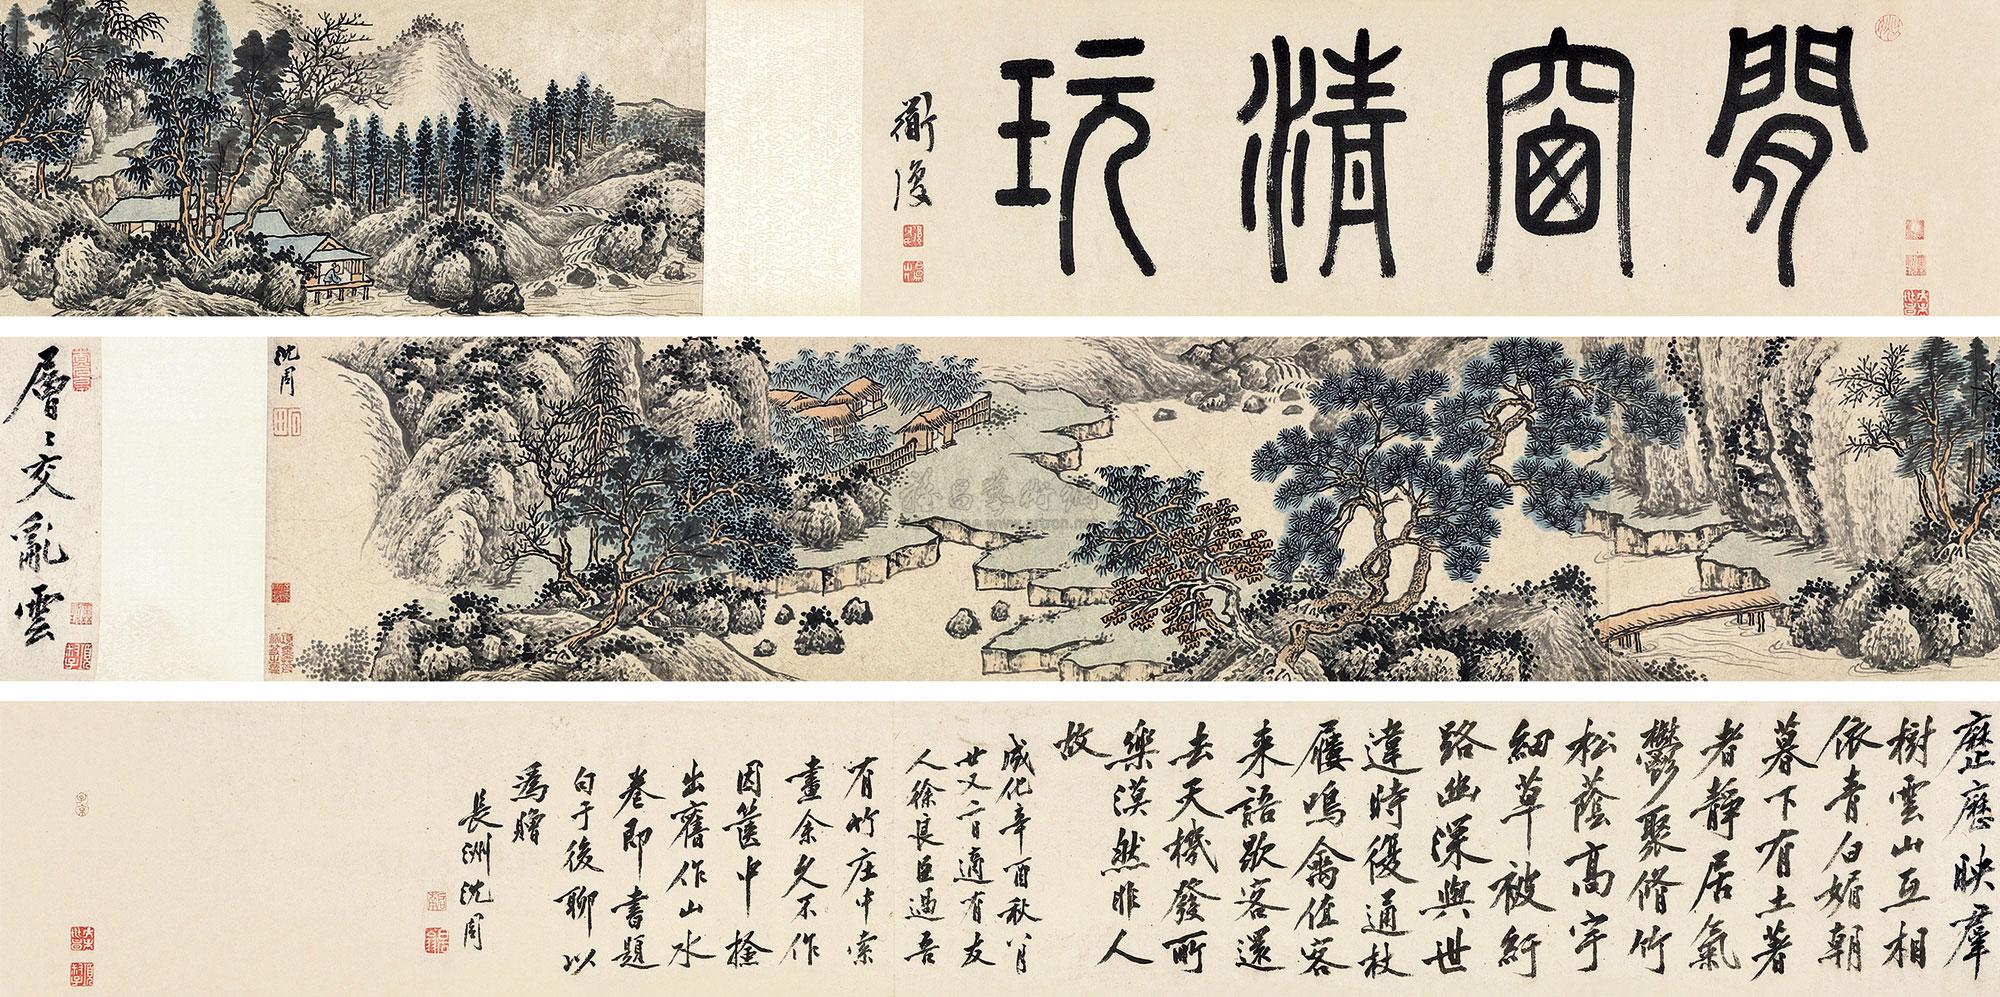 閒窗清玩
衡復
沈周
層〻交亂雲
歷歷映羣
樹雲山互相
依青白媚朝
暮下有土著
者靜居氣
鬱聚脩竹
松蔭高宇
細草被紆
路幽深與世
違時復通杖
屨鳴禽值客
來語歇客還
去天機發所
樂漠然非人
故
成化辛酉秋八月
廿又二日適有友
人徐良臣過吾
有竹庄中索
畫余久不作
因篋中撿
出舊作山水
卷即書題
句于後聊以
爲贈
長洲沈周